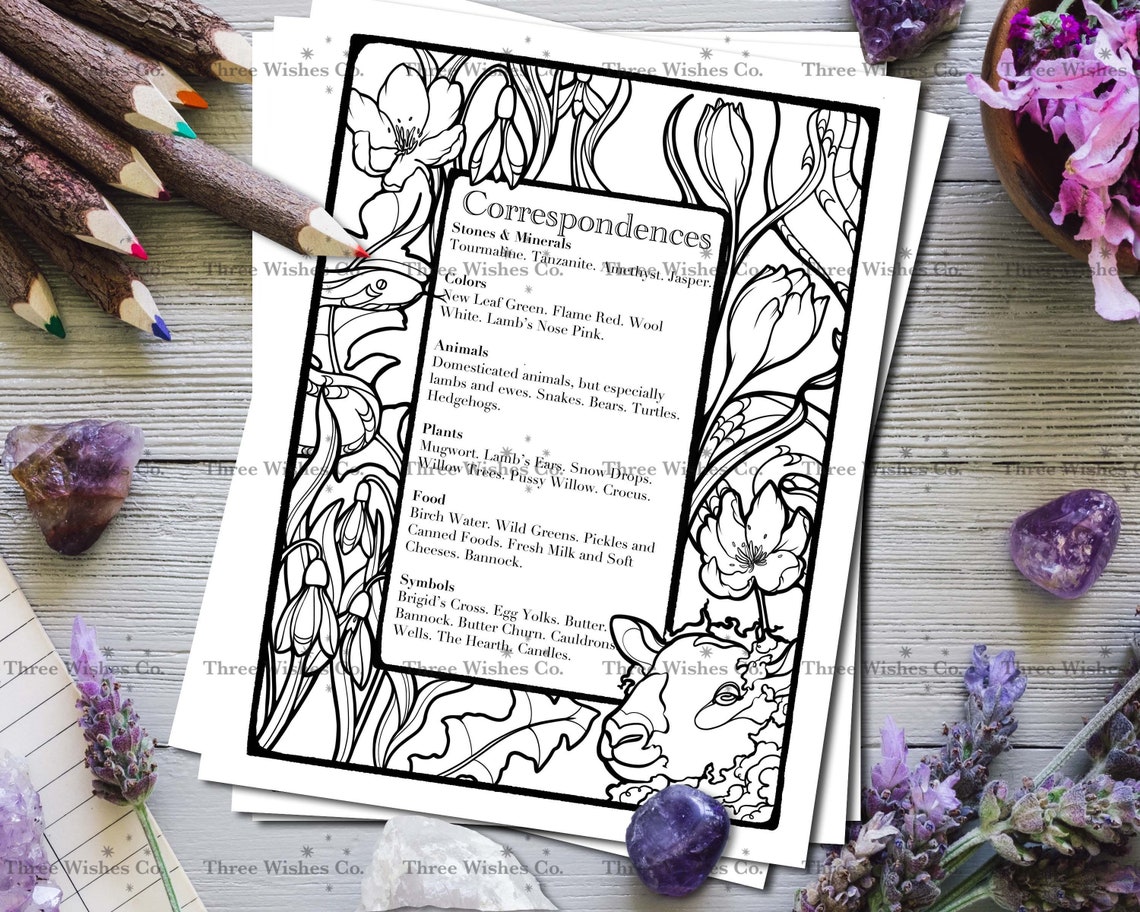 Three Wishes Co. Three Wishes Co. Three Wishes Co. Three Wishes Co. Three Wishes Co.
Correspondences
Stones & Minerals
Tourmaline. Tanzanite. Amethyst. Jasper.
Three Wishes Co. Three Wishes Co. Three Wishes Co. Three Wishes Co.
Colors
New Leaf Green. Flame Red. Wool
White. Lamb's Nose Pink.
Animals
Domesticated animals, but especially
lambs and ewes. Snakes. Bears. Turtles.
Hedgehogs.
Plants
Mugwort. Lamb's Ears. Snow Drops.
Willow Trees. Pussy Willow. Crocus.
Three Wishes Co. Three Wishes Co. Three Wishes Co. Three Wishes Co. Three Wishes Co.
Food
Birch Water. Wild Greens. Pickles and
Canned Foods. Fresh Milk and Soft
Cheeses. Bannock.
Symbols
Brigid's Cross. Egg Yolks. Butter.
Bannock. Butter Churn. Cauldrons
Wells. The Hearth. Candles.
Three Wishes Co. Three Wishes Co. Three Wishes Co. Three Wishes Co. Three Wishes Co.
Three Wishes Co. Three Wishes Co. Three Wishes Co. Three Wishes Co. Three Wishes Co.